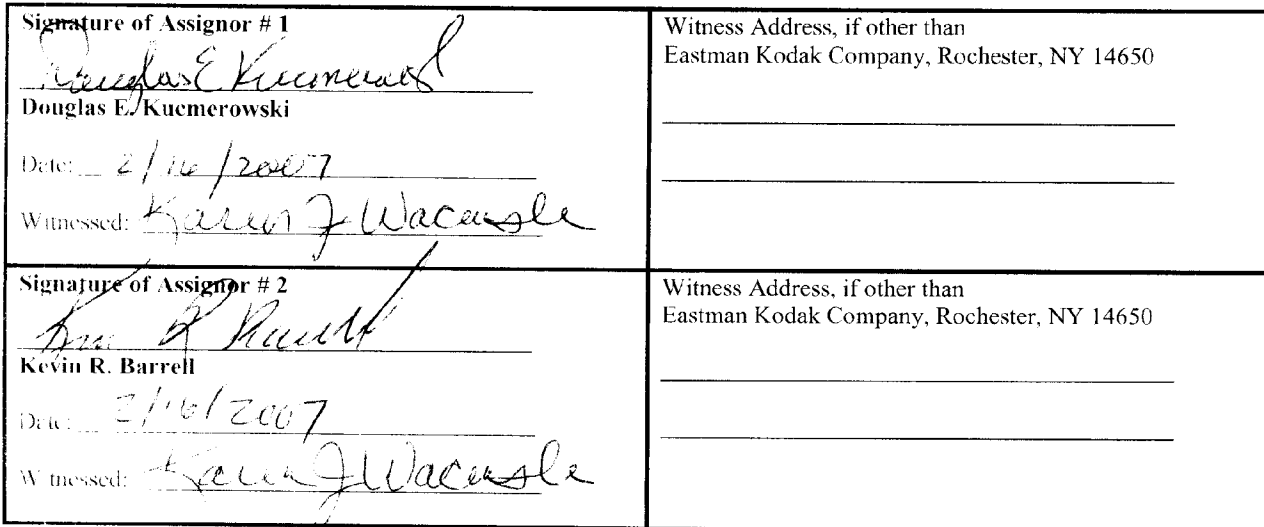 Signature of Assignor # 1
Douglas E Kucmerowski
Douglas E. Kucmerowski
Date: 2/16/2007
Witnessed: Karen J
Witness Address, if other than
Eastman Kodak Company, Rochester, NY 14650
Signature of Assignor # 2
Kevin R. Barrell
Date: 2/16/2007
Witnessed: Karen J
Witness Address, if other than
Eastman Kodak Company, Rochester, NY 14650